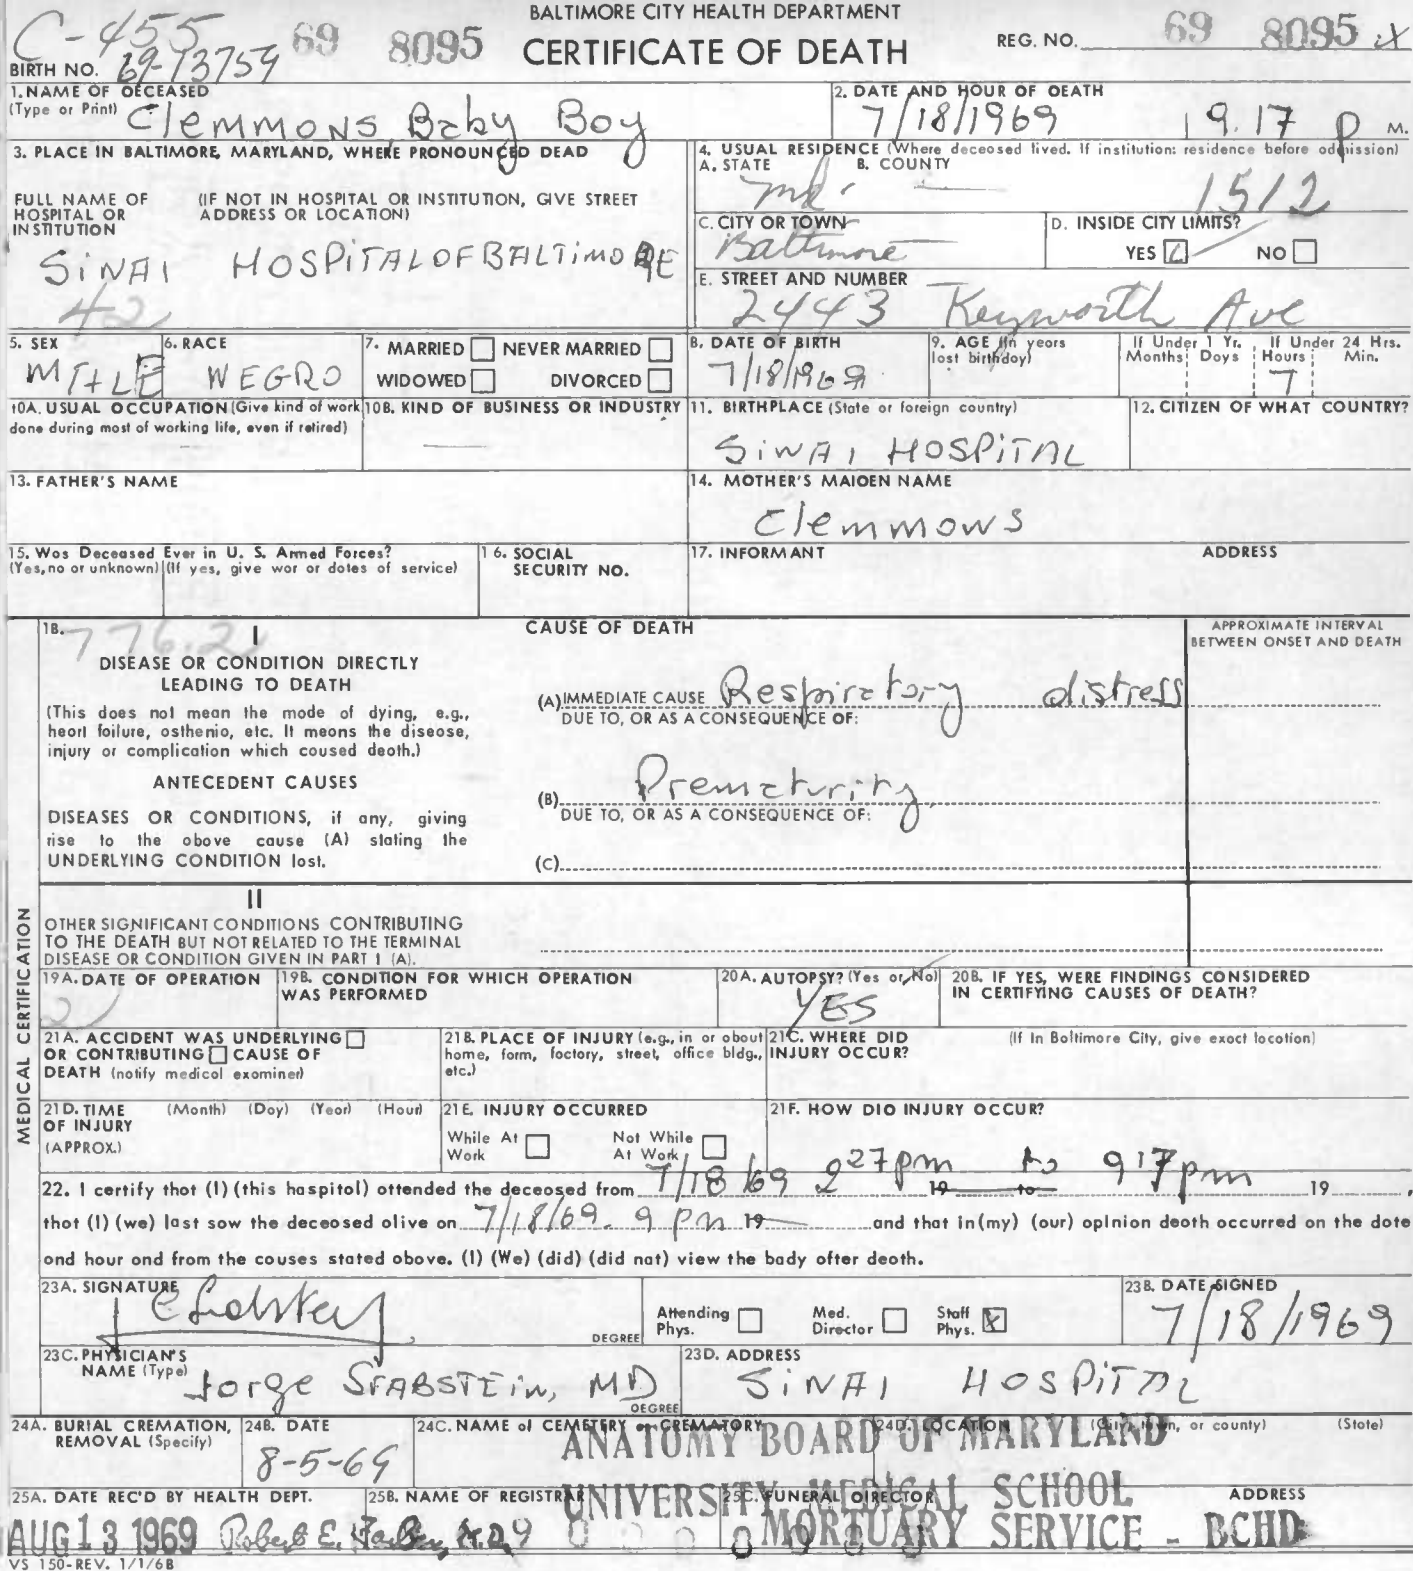 C-455 69 8095 BALTIMORE CITY HEALTH DEPARTMENT
CERTIFICATE OF DEATH REG. NO. 69 8095
BIRTH NO. 69-13759
1. NAME OF DECEASED
(Type or Print) Clemmons, Baby Boy
2. DATE AND HOUR OF DEATH
7/18/1969 9.17 P M.
3. PLACE IN BALTIMORE, MARYLAND, WHERE PRONOUNCED DEAD
FULL NAME OF HOSPITAL OR INSTITUTION
(IF NOT IN HOSPITAL OR INSTITUTION, GIVE STREET ADDRESS OR LOCATION)
SINAI HOSPITAL OF BALTIMORE
42
4. USUAL RESIDENCE (Where deceased lived. If institution: residence before admission)
A. STATE B. COUNTY
Md. — 1512
C. CITY OR TOWN
Baltimore
D. INSIDE CITY LIMITS?
YES NO
E. STREET AND NUMBER
2443 Keyworth Ave
5. SEX
MALE
6. RACE
NEGRO
7. MARRIED NEVER MARRIED
WIDOWED DIVORCED
8. DATE OF BIRTH
7/18/1969
9. AGE (In years last birthday)
If Under 1 Yr. If Under 24 Hrs.
Months Days Hours Min.
7
10A. USUAL OCCUPATION (Give kind of work done during most of working life, even if retired)
10B. KIND OF BUSINESS OR INDUSTRY
11. BIRTHPLACE (State or foreign country)
SINAI HOSPITAL
12. CITIZEN OF WHAT COUNTRY?
13. FATHER'S NAME
14. MOTHER'S MAIDEN NAME
Clemmons
15. Was Deceased Ever in U. S. Armed Forces?
(Yes, no or unknown) (If yes, give war or dates of service)
16. SOCIAL SECURITY NO.
17. INFORMANT ADDRESS
18. 776.2 I
CAUSE OF DEATH
APPROXIMATE INTERVAL
BETWEEN ONSET AND DEATH
DISEASE OR CONDITION DIRECTLY
LEADING TO DEATH
(This does not mean the mode of dying, e.g.,
heart failure, asthenia, etc. It means the disease,
injury or complication which caused death.)
(A) IMMEDIATE CAUSE Respiratory distress
DUE TO, OR AS A CONSEQUENCE OF:
ANTECEDENT CAUSES
DISEASES OR CONDITIONS, if any, giving
rise to the above cause (A) stating the
UNDERLYING CONDITION last.
(B) Prematurity
DUE TO, OR AS A CONSEQUENCE OF:
(C)
MEDICAL CERTIFICATION
II
OTHER SIGNIFICANT CONDITIONS CONTRIBUTING
TO THE DEATH BUT NOT RELATED TO THE TERMINAL
DISEASE OR CONDITION GIVEN IN PART 1 (A).
19A. DATE OF OPERATION
19B. CONDITION FOR WHICH OPERATION WAS PERFORMED
20A. AUTOPSY? (Yes or No)
YES
20B. IF YES, WERE FINDINGS CONSIDERED IN CERTIFYING CAUSES OF DEATH?
21A. ACCIDENT WAS UNDERLYING
OR CONTRIBUTING CAUSE OF
DEATH (notify medical examiner)
21B. PLACE OF INJURY (e.g., in or about
home, farm, factory, street, office bldg.,
etc.)
21C. WHERE DID INJURY OCCUR?
(If In Baltimore City, give exact location)
21D. TIME OF INJURY (APPROX.)
(Month) (Day) (Year) (Hour)
21E. INJURY OCCURRED
While At Work Not While At Work
21F. HOW DID INJURY OCCUR?
22. I certify that (I) (this hospital) attended the deceased from 7/18/69 2 27 pm 19 to 9 17 pm 19 ,
that (I) (we) last saw the deceased alive on 7/18/69. 9 pm 19 and that in (my) (our) opinion death occurred on the date
and hour and from the causes stated above. (I) (We) (did) (did not) view the body after death.
23A. SIGNATURE
DEGREE
Attending Phys. Med. Director Staff Phys. X
23B. DATE SIGNED
7/18/1969
23C. PHYSICIAN'S NAME (Type)
Jorge STABSTEIN, MD
DEGREE
23D. ADDRESS
SINAI HOSPITAL
24A. BURIAL CREMATION, REMOVAL (Specify)
24B. DATE
8-5-69
24C. NAME of CEMETERY or CREMATORY
24D. LOCATION (City, town, or county) (State)
ANATOMY BOARD OF MARYLAND
UNIVERSITY MEDICAL SCHOOL
MORTUARY SERVICE - BCHD
25A. DATE REC'D BY HEALTH DEPT.
AUG 13 1969
25B. NAME OF REGISTRAR
Robert E. Farber, M.D.
25C. FUNERAL DIRECTOR ADDRESS
VS 150-REV. 1/1/68